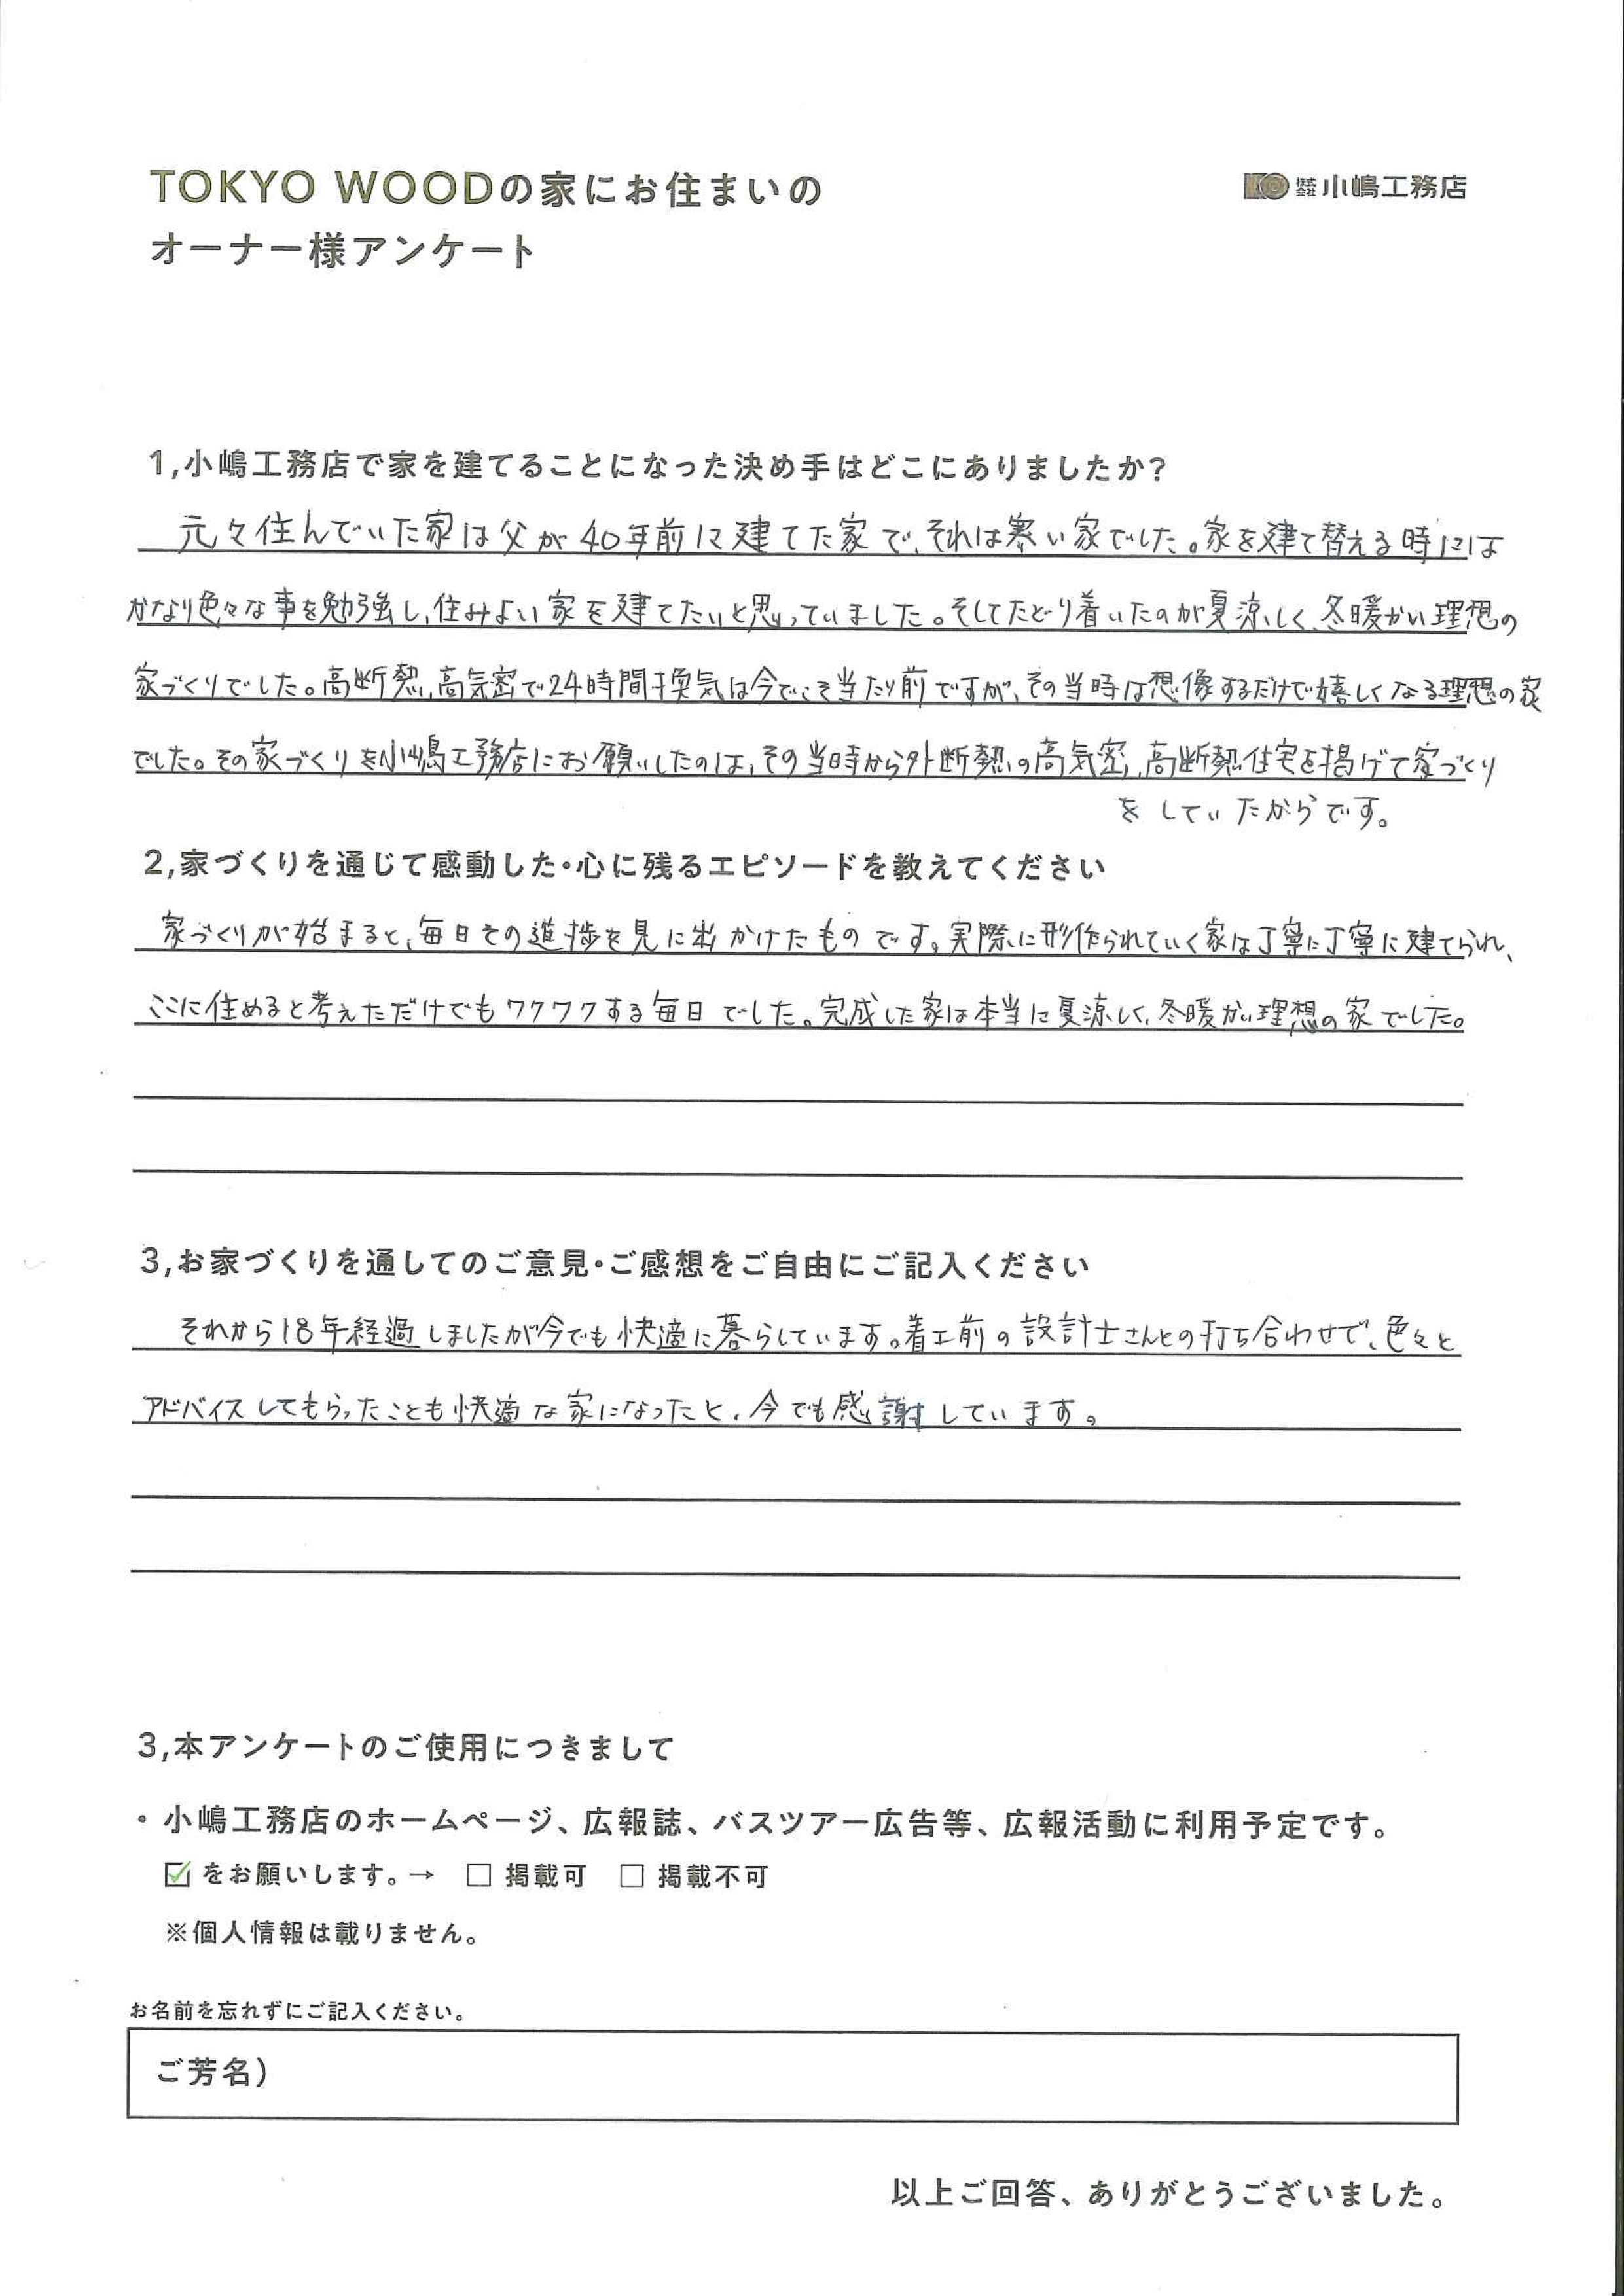 TOKYO WOODの家にお住まいの
オーナー様アンケート
株式会社 小嶋工務店
1,小嶋工務店で家を建てることになった決め手はどこにありましたか?
元々住んでいた家は父が40年前に建てた家で、それは寒い家でした。家を建て替える時には
かなり色々な事を勉強し、住みよい家を建てたいと思っていました。そしてたどり着いたのが夏涼しく、冬暖かい理想の
家づくりでした。高断熱、高気密で24時間換気は今でこそ当たり前ですが、その当時は想像するだけで嬉しくなる理想の家
でした。その家づくりを小嶋工務店にお願いしたのは、その当時から外断熱の高気密、高断熱住宅を掲げて家づくり
をしていたからです。
2,家づくりを通じて感動した・心に残るエピソードを教えてください
家づくりが始まると、毎日その進捗を見に出かけたものです。実際に形作られていく家は丁寧に丁寧に建てられ、
ここに住めると考えただけでもワクワクする毎日でした。完成した家は本当に夏涼しく、冬暖かい理想の家でした。
3,お家づくりを通してのご意見・ご感想をご自由にご記入ください
それから18年経過しましたが今でも快適に暮らしています。着工前の設計士さんとの打ち合わせで、色々と
アドバイスしてもらったことも快適な家になったと、今でも感謝しています。
3,本アンケートのご使用につきまして
・小嶋工務店のホームページ、広報誌、バスツアー広告等、広報活動に利用予定です。
☑をお願いします。→ □ 掲載可 □ 掲載不可
※個人情報は載りません。
お名前を忘れずにご記入ください。
ご芳名)
以上ご回答、ありがとうございました。